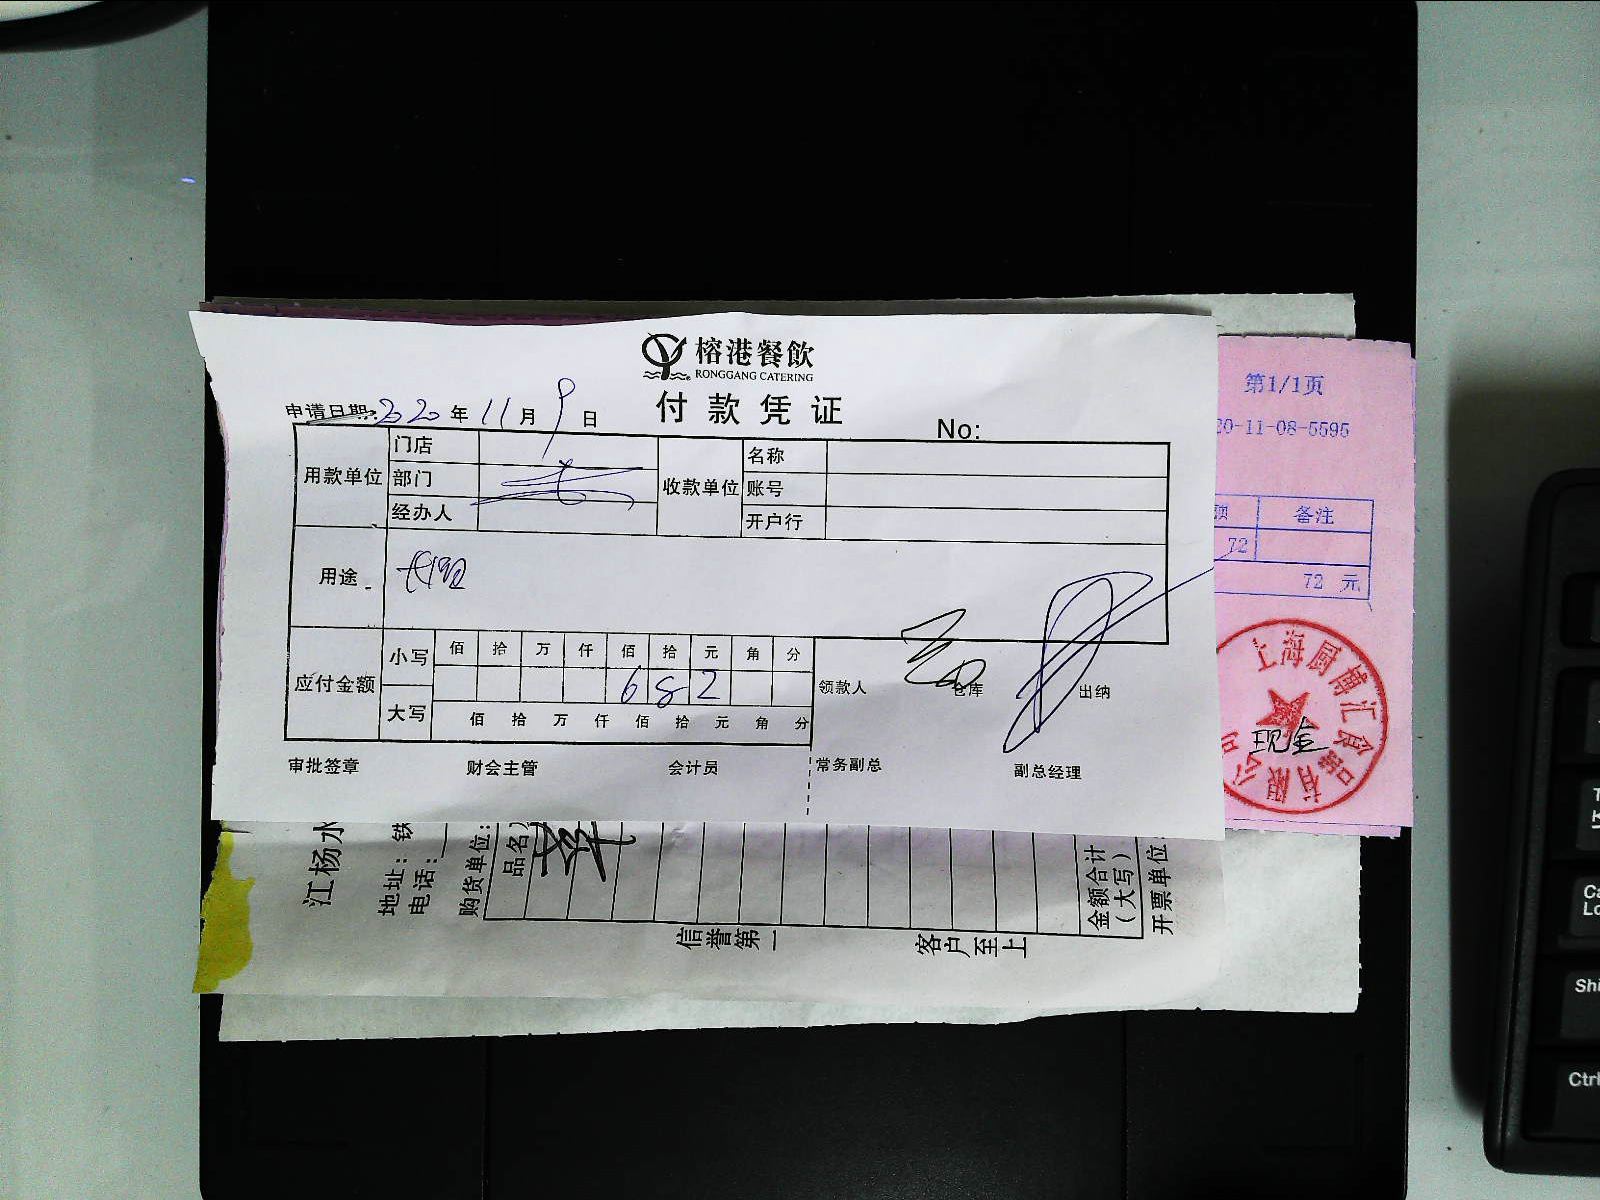 榕港餐飲
RONGGANG CATERING
付款凭证
申请日期: 2020年11月9日
No:
用款单位 门店 收款单位 名称
部门 账号
经办人 开户行
用途
应付金额 小写 佰 拾 万 仟 佰 拾 元 角 分
6 8 2
大写 佰 拾 万 仟 佰 拾 元 角 分
领款人 仓库 出纳
审批签章 财会主管 会计员 常务副总 副总经理
第1/1页
20-11-08-5595
额 备注
72
72 元
上海厨博汇食品有限公司
现金
江杨水
地址: 铁
电话:
购货单位:
品名
金额合计
(大写)
开票单位:
信誉第一 客户至上
Shi
Ctrl